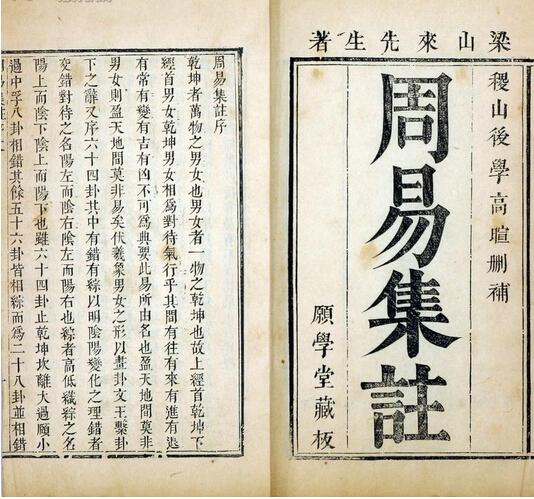 梁山來先生著
稷山後學高暄删補
周易集註
願學堂藏板
周易集註序
乾坤者萬物之男女也男女者一物之乾坤也故上經首乾坤下
經首男女乾坤男女相爲對待氣行乎其間有往有來有進有退
有常有變有吉有凶不可爲典要此易所由名也盈天地間莫非
男女則盈天地間莫非易矣伏羲象男女之形以畫卦文王繫卦
下之辭又序六十四卦其中有錯有綜以明陰陽變化之理錯者
交錯對待之名陽左而陰右陰左而陽右也綜者高低織綜之名
陽上而陰下陰上而陽下也雖六十四卦止乾坤坎離大過頤小
過中孚八卦相錯其餘五十六卦皆相綜而爲二十八卦並相錯